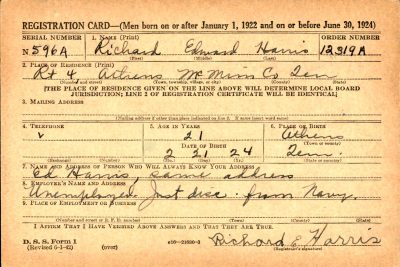 REGISTRATION CARD—(Men born on or after January 1, 1922 and on or before June 30, 1924)
SERIAL NUMBER 1. NAME (Print) ORDER NUMBER
N 596A Richard Edward Harris 12,519A
(First) (Middle) (Last)
2. PLACE OF RESIDENCE (Print)
Rt 4 Athens McMinn Co Ten
(Number and street) (Town, township, village, or city) (County) (State)
[THE PLACE OF RESIDENCE GIVEN ON THE LINE ABOVE WILL DETERMINE LOCAL BOARD
JURISDICTION; LINE 2 OF REGISTRATION CERTIFICATE WILL BE IDENTICAL]
3. MAILING ADDRESS
[Mailing address if other than place indicated on line 2. If same insert word same]
4. TELEPHONE 5. AGE IN YEARS 6. PLACE OF BIRTH
21 Athens
DATE OF BIRTH (Town or county)
2 21 24 Tenn.
(Exchange) (Number) (Mo.) (Day) (Yr.) (State or country)
7. NAME AND ADDRESS OF PERSON WHO WILL ALWAYS KNOW YOUR ADDRESS
Ed Harris, same address
8. EMPLOYER'S NAME AND ADDRESS
Unemployed. Just disc. from Navy.
9. PLACE OF EMPLOYMENT OR BUSINESS
(Number and street or R. F. D. number) (Town) (County) (State)
I AFFIRM THAT I HAVE VERIFIED ABOVE ANSWERS AND THAT THEY ARE TRUE.
D. S. S. Form 1
(Revised 6-1-42) (over) Richard E Harris
(Registrant's signature)